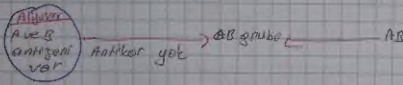 Alyuvar
A ve B
antijeni
var
Antikor yok
AB grubu
AB